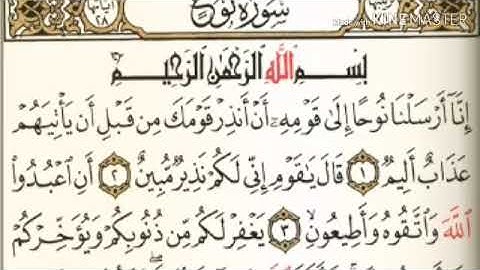 آياتها ٢٨
سورة نوح
ترتيبها
Made with KINEMASTER
بِسْمِ ٱللَّهِ ٱلرَّحْمَٰنِ ٱلرَّحِيمِ
إِنَّآ أَرْسَلْنَا نُوحًا إِلَىٰ قَوْمِهِۦٓ أَنْ أَنذِرْ قَوْمَكَ مِن قَبْلِ أَن يَأْتِيَهُمْ
عَذَابٌ أَلِيمٌ ١ قَالَ يَٰقَوْمِ إِنِّى لَكُمْ نَذِيرٌ مُّبِينٌ ٢ أَنِ ٱعْبُدُوا۟
ٱللَّهَ وَٱتَّقُوهُ وَأَطِيعُونِ ٣ يَغْفِرْ لَكُم مِّن ذُنُوبِكُمْ وَيُؤَخِّرْكُمْ